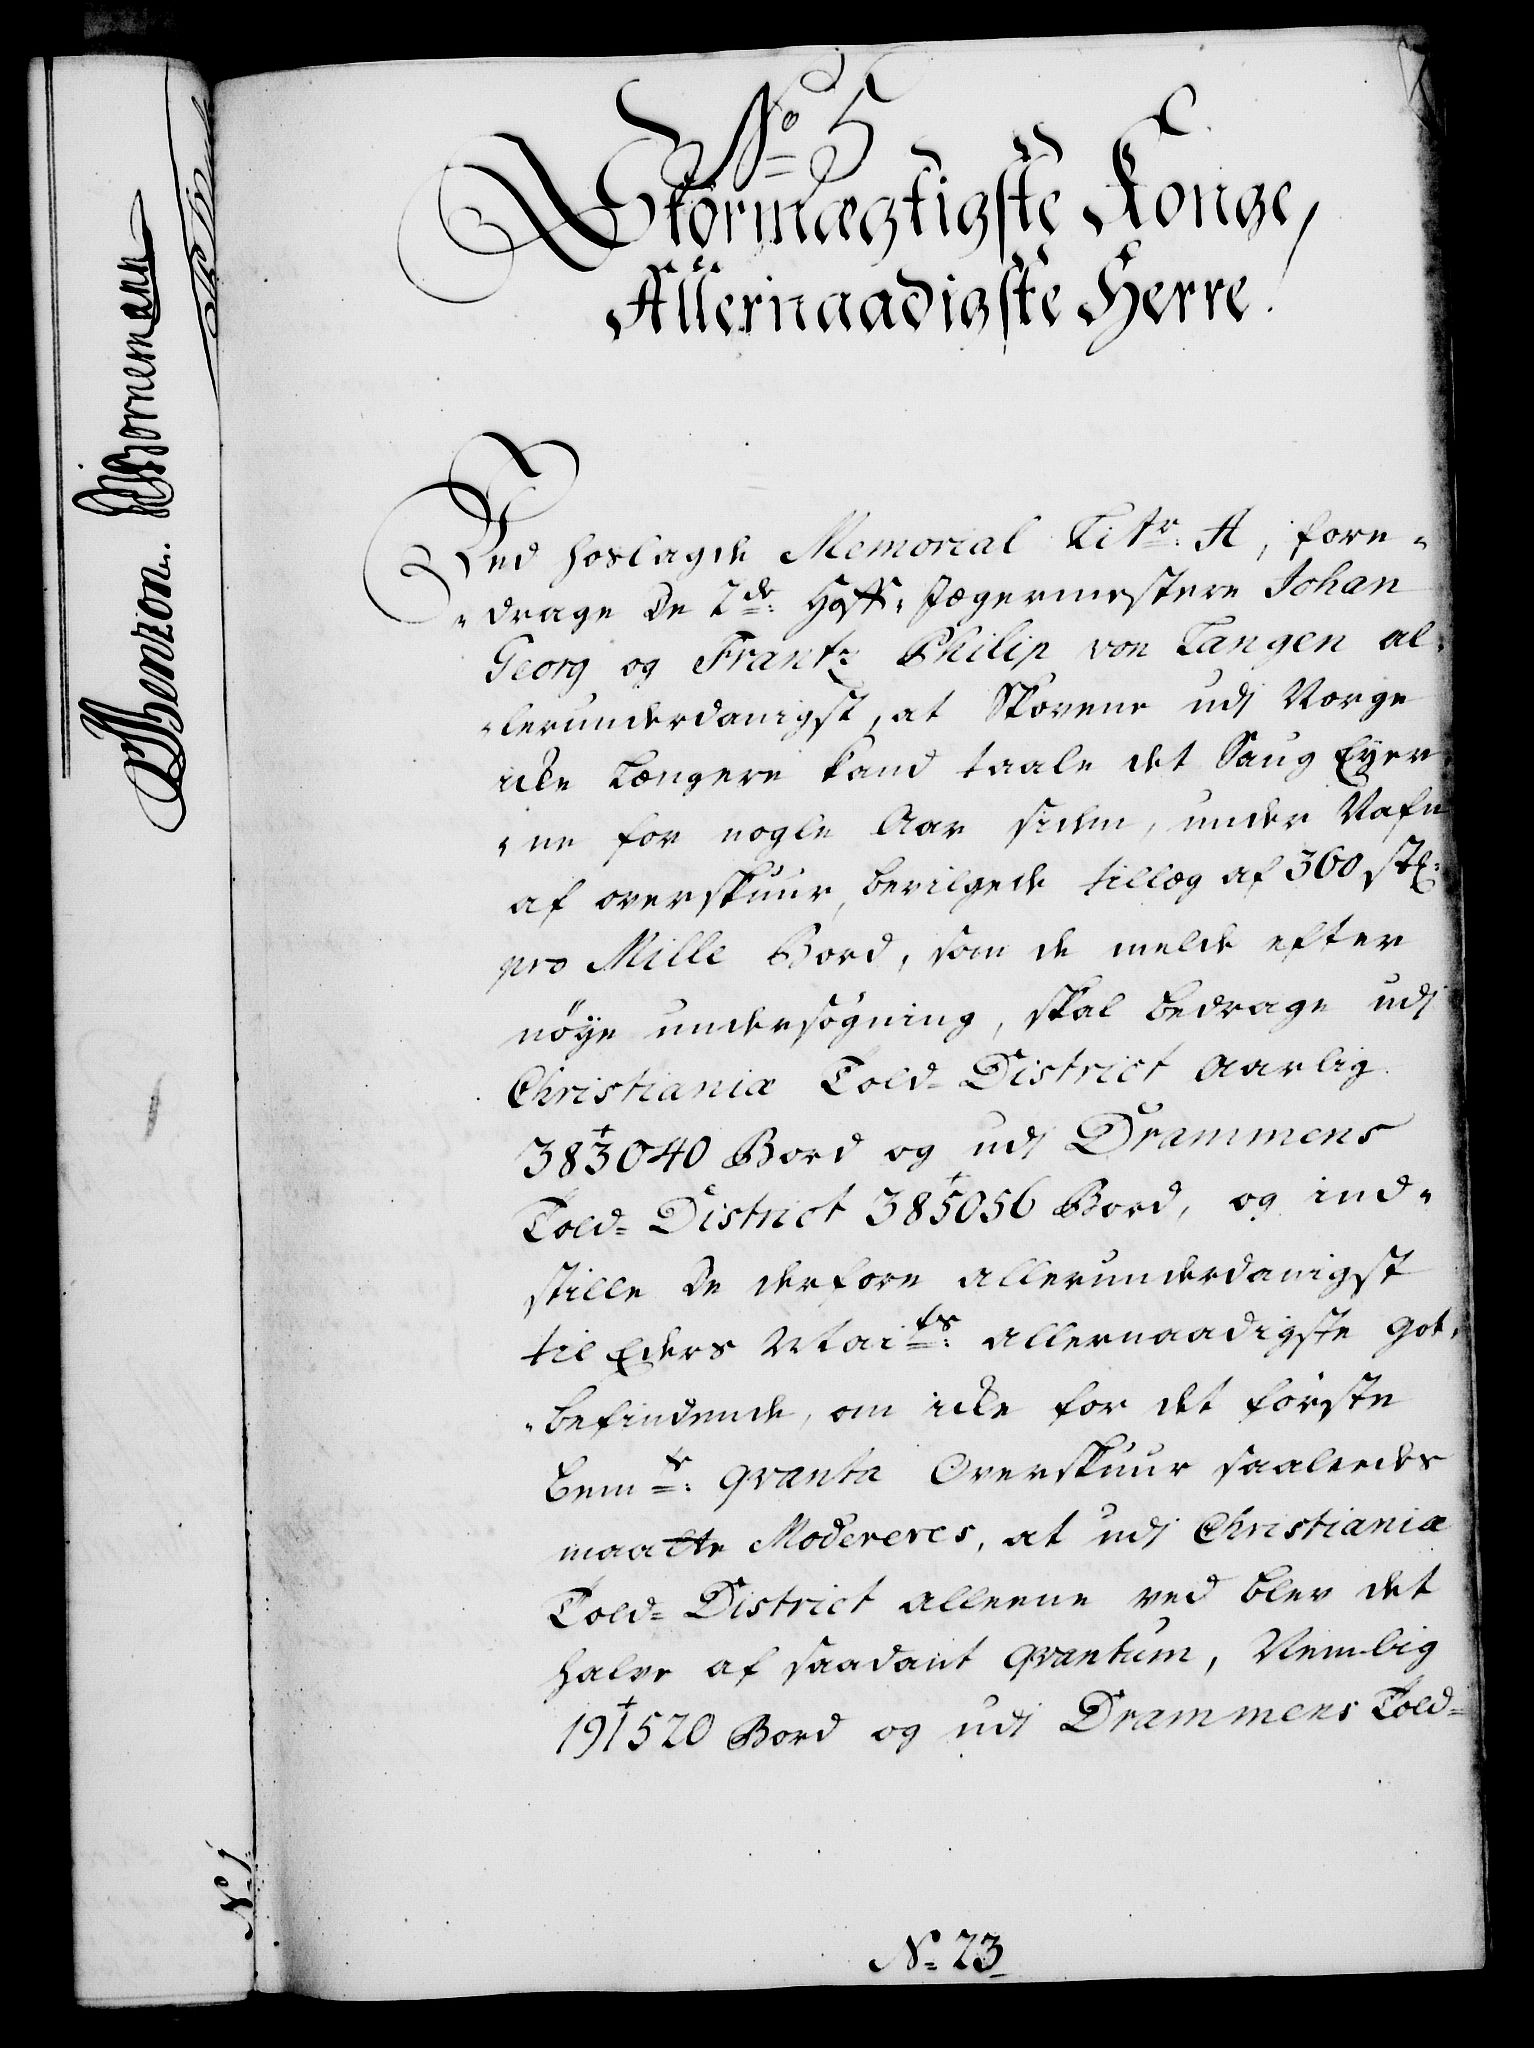 No 5
Stormægtigste Konge,
Allernaadigste Herre.
Ved hoslagde Memorial Litr: A, fore-
-drage De 2de: Hoff-Jægermestere Johan
Georg og Frantz Philip von Langen al-
-lerunderdanigst, at Skovene udj Norge
icke længere kand taale det Saug Eyer-
-ne for nogle Aar siden, under Nafn
af overskuur, bevilgede tillæg af 360 stk:
pro Mille Bord, som de melde efter
nöye undersögning, skal bedrage udj
Christianiæ Told-District Aarlig
383040 Bord og udj Drammens
Told-District 385056 Bord, og ind-
stille De derfore allerunderdanigst
til Eders Maits: allernaadigste got-
-befindende, om icke for det förste
bemte: qvanta Overskuur saaledes
maatte Modereres, at udj Christianiæ
Told-District alleene ved blev det
halve af saadant qvantum, Nemlig
191520 Bord og udj Drammens Told-
No 23
Benzon. Bornemann
N 1.